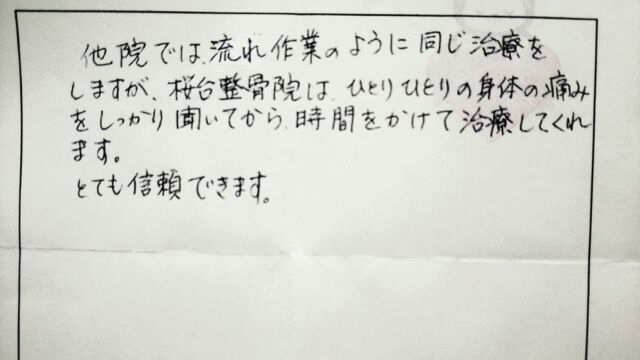 他院では、流れ作業のように同じ治療を
しますが、桜台整骨院は、ひとりひとりの身体の痛み
をしっかり聞いてから、時間をかけて治療してくれ
ます。
とても信頼できます。